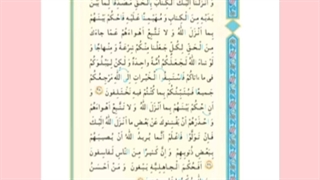 وَ أَنْزَلْنَا إِلَيْكَ الْكِتَابَ بِالْحَقِّ مُصَدِّقًا لِمَا بَيْنَ
يَدَيْهِ مِنَ الْكِتَابِ وَ مُهَيْمِنًا عَلَيْهِ فَاحْكُمْ بَيْنَهُمْ
بِمَا أَنْزَلَ اللَّهُ وَ لَا تَتَّبِعْ أَهْوَاءَهُمْ عَمَّا جَاءَكَ
مِنَ الْحَقِّ لِكُلٍّ جَعَلْنَا مِنْكُمْ شِرْعَةً وَ مِنْهَاجًا وَ
لَوْ شَاءَ اللَّهُ لَجَعَلَكُمْ أُمَّةً وَاحِدَةً وَ لَكِنْ لِيَبْلُوَكُمْ
فِي مَا آتَاكُمْ فَاسْتَبِقُوا الْخَيْرَاتِ إِلَى اللَّهِ مَرْجِعُكُمْ
جَمِيعًا فَيُنَبِّئُكُمْ بِمَا كُنْتُمْ فِيهِ تَخْتَلِفُونَ وَ
أَنِ احْكُمْ بَيْنَهُمْ بِمَا أَنْزَلَ اللَّهُ وَ لَا تَتَّبِعْ أَهْوَاءَهُمْ
وَ احْذَرْهُمْ أَنْ يَفْتِنُوكَ عَنْ بَعْضِ مَا أَنْزَلَ اللَّهُ إِلَيْكَ
فَإِنْ تَوَلَّوْا فَاعْلَمْ أَنَّمَا يُرِيدُ اللَّهُ أَنْ يُصِيبَهُمْ
بِبَعْضِ ذُنُوبِهِمْ وَ إِنَّ كَثِيرًا مِنَ النَّاسِ لَفَاسِقُونَ
أَفَحُكْمَ الْجَاهِلِيَّةِ يَبْغُونَ وَ مَنْ أَحْسَنُ